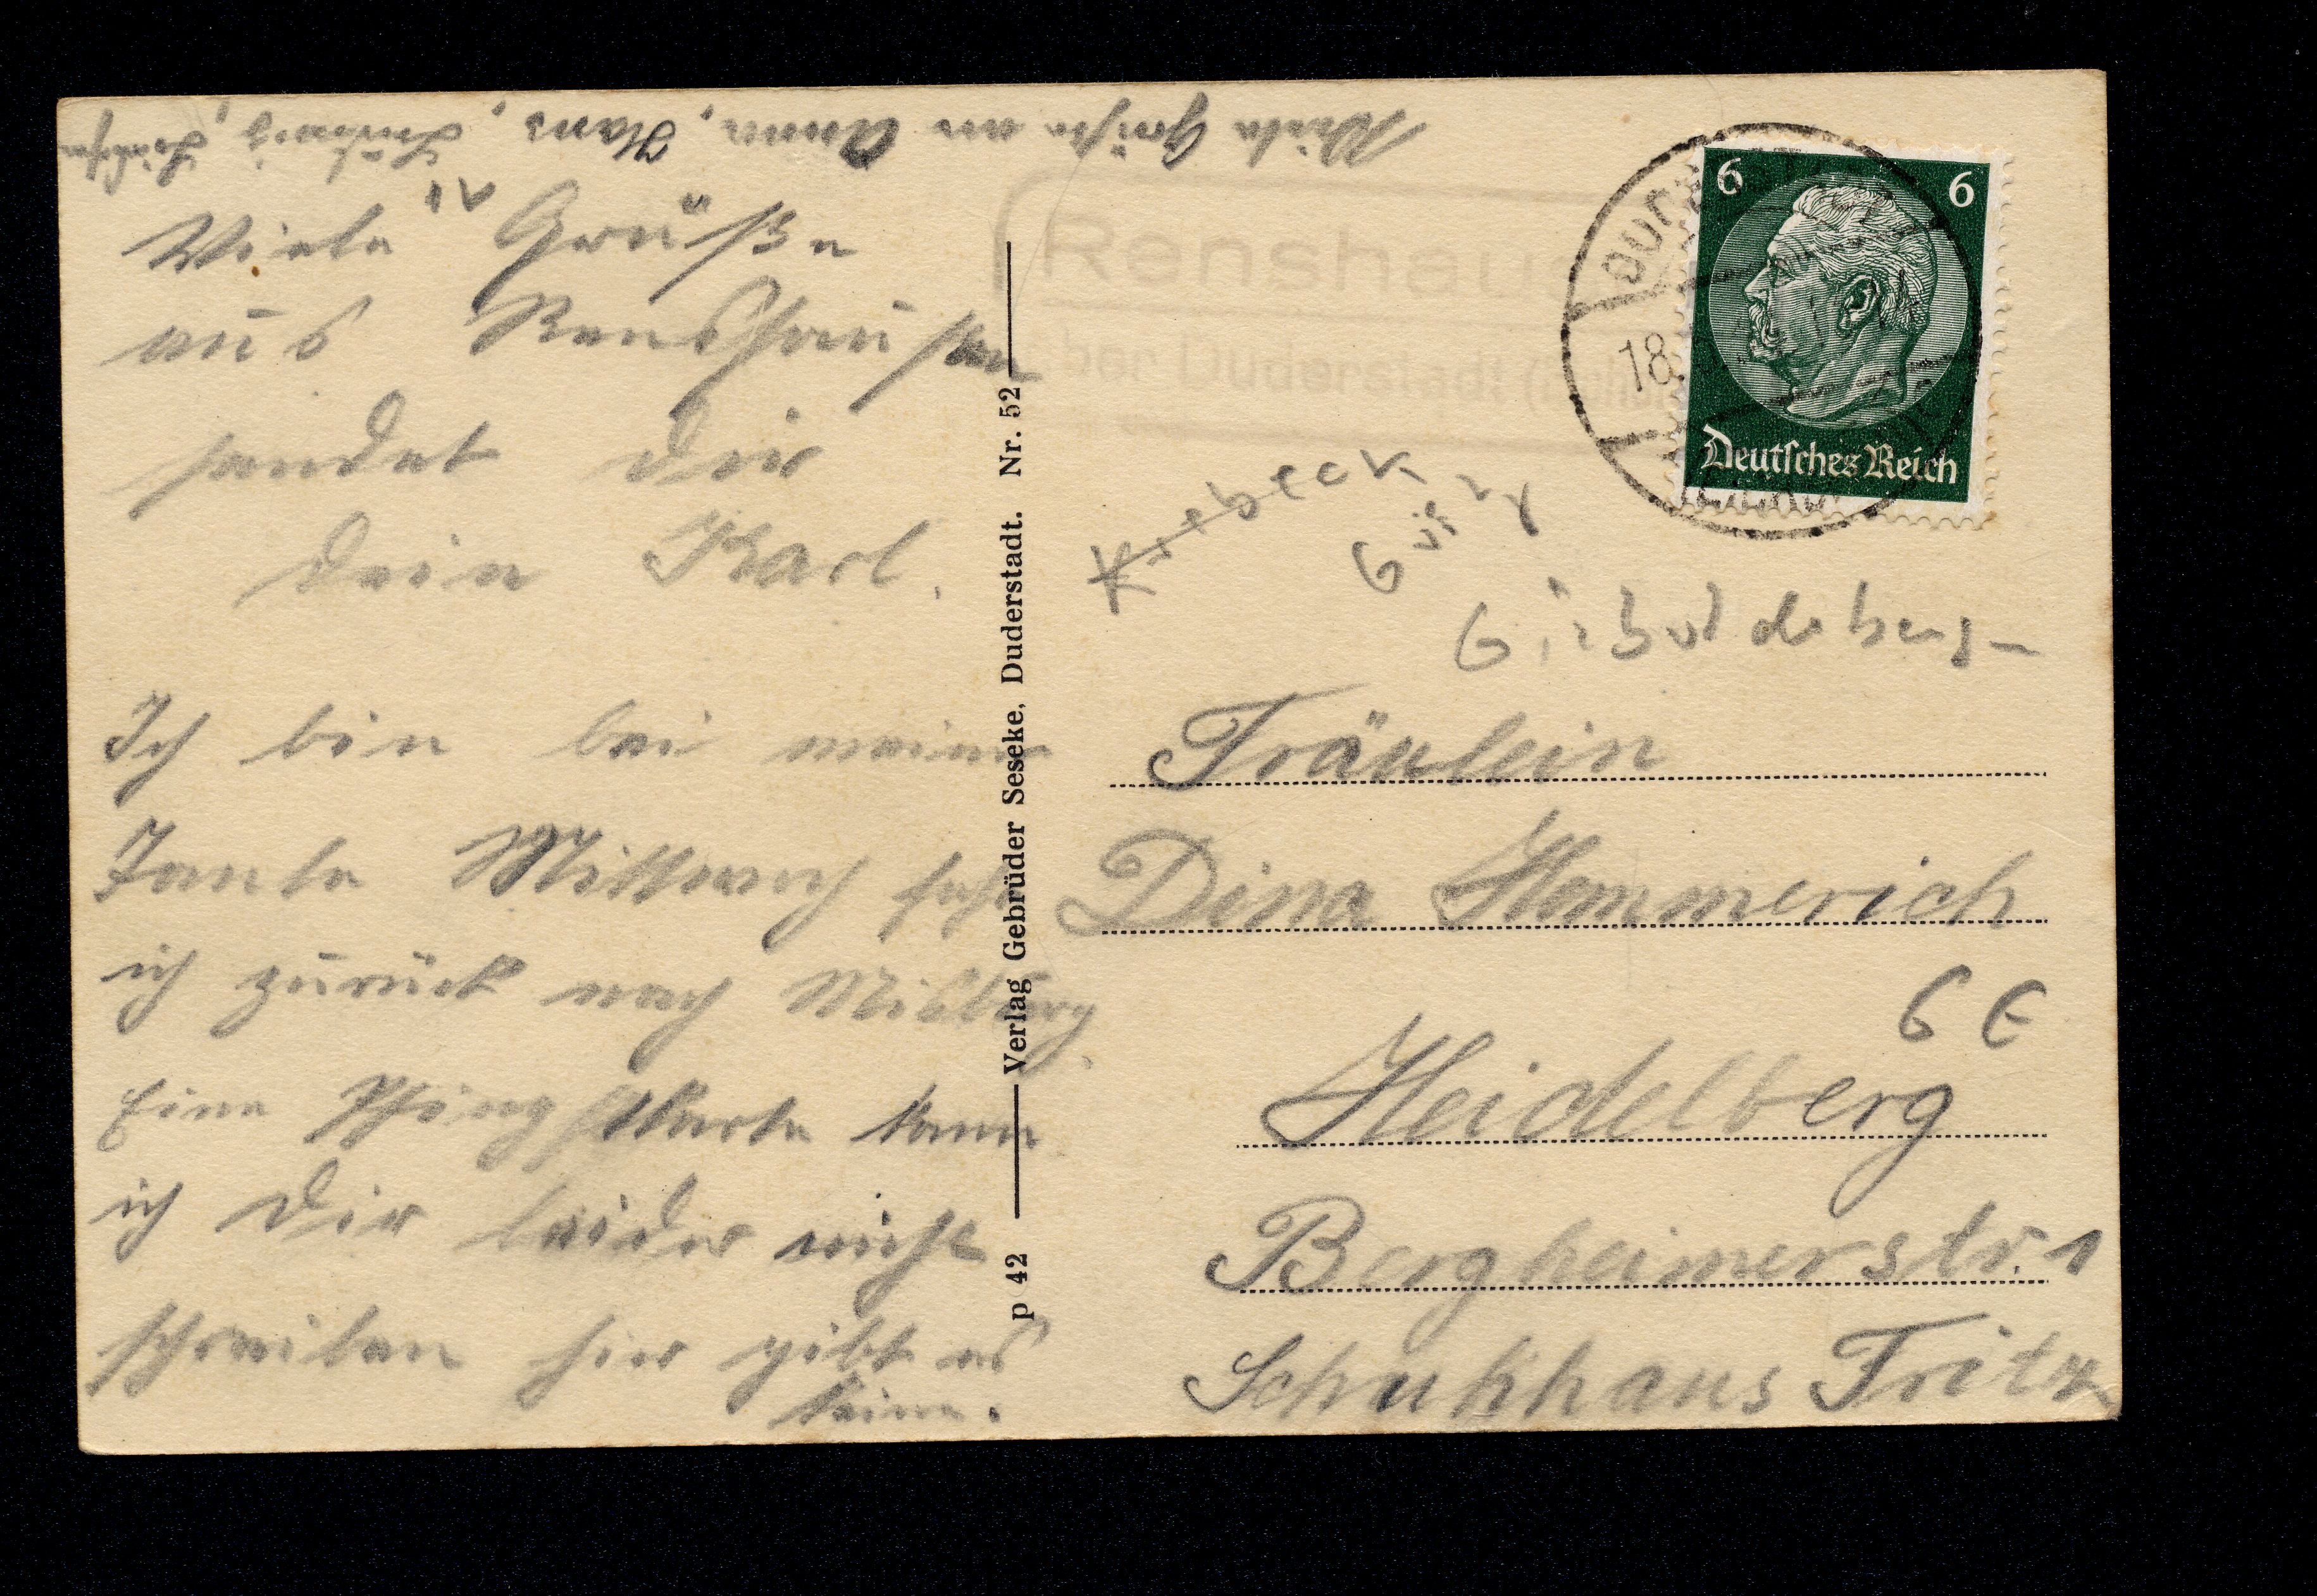 Viele Grüße an Anna, Hans, Ludwig,
Viele Grüße
aus Renshausen
sendet Dir
Dein Karl.
Ich bin bei meiner
Tante Mittwoch fahre
ich zurück nach
Eine Pfingstkarte kann
ich Dir leider nicht
schreiben hier gibt es
keine.
p 42 Verlag Gebrüder Seseke, Duderstadt. Nr. 52
Renshausen
über Duderstadt
18.
6 6
Deutsches Reich
Krebeck
Gieboldehaus-
Fräulein
Dina Hemmerich
6 €
Heidelberg
Bergheimerstr. 1
Schuhhaus Fritz